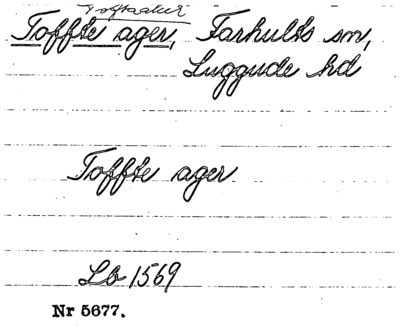 Toftaaker
Toffte ager, Farhults sn,
Luggude hd
Toffte ager
Lb 1569
Nr 5677.